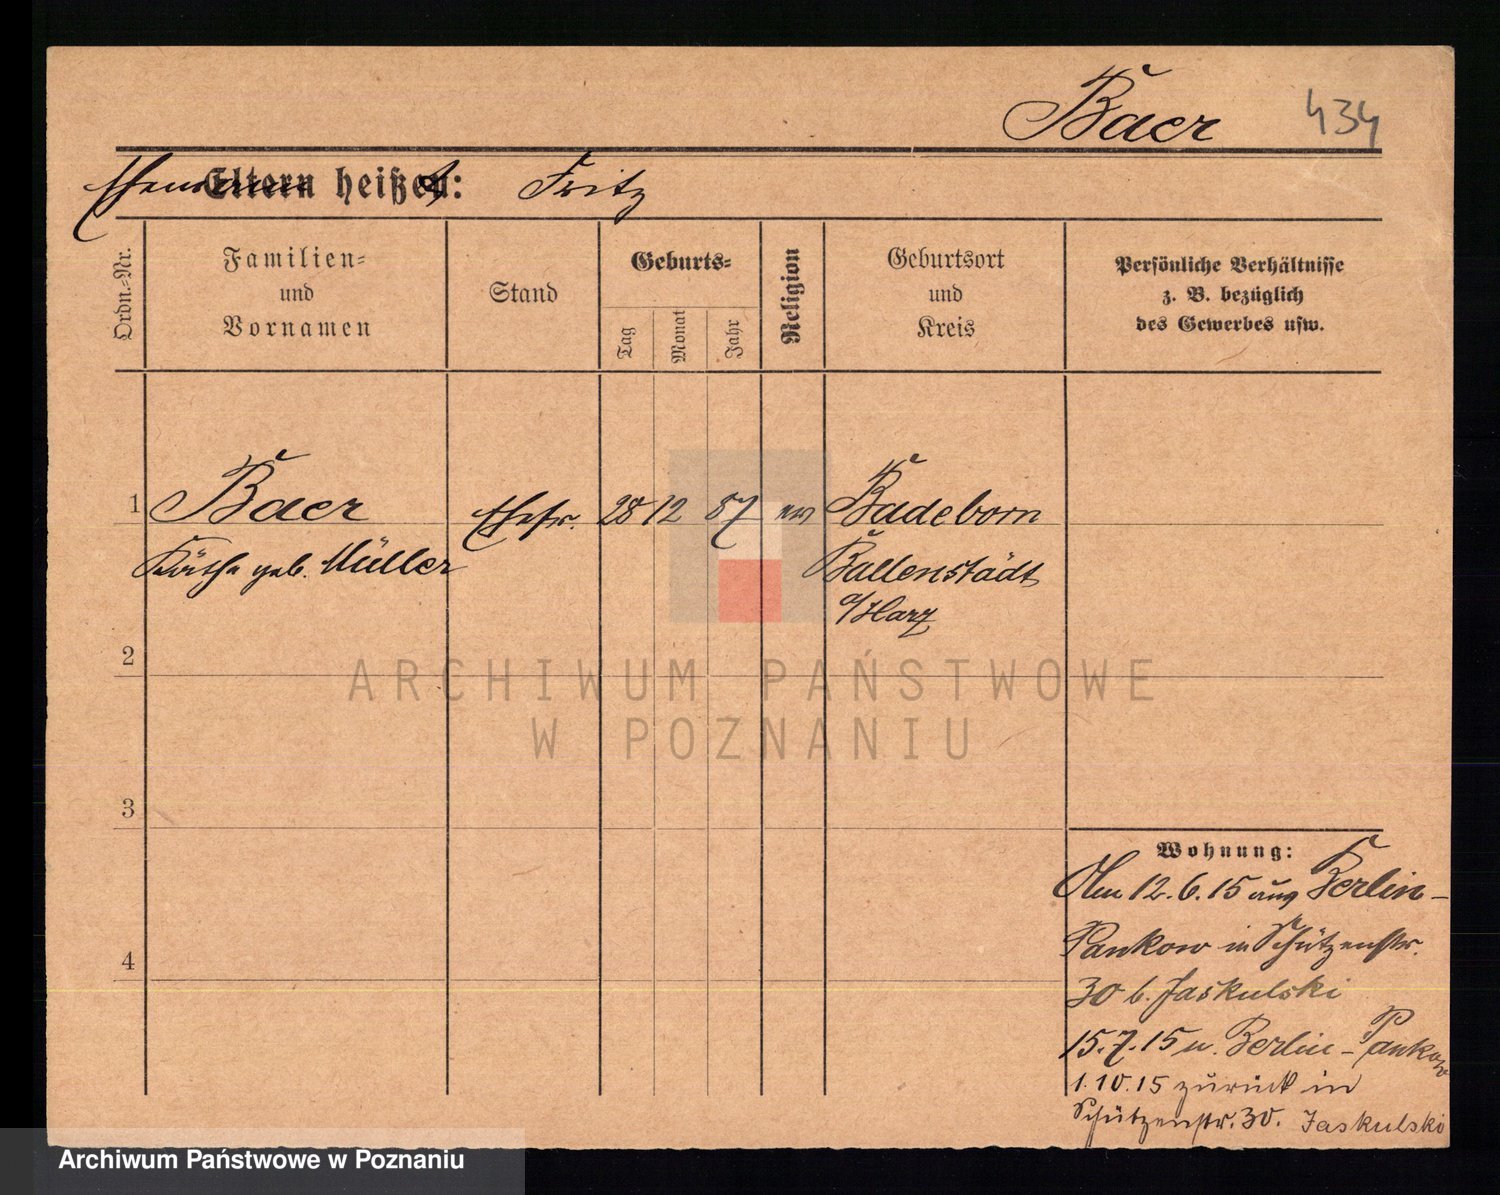 Baer 434
Ehemann Eltern heißen: Fritz
Ordn.-Nr.
Familien=
und
Vornamen
Stand
Geburts=
Tag
Monat
Jahr
Religion
Geburtsort
und
Kreis
Persönliche Verhältnisse
z. B. bezüglich
des Gewerbes usw.
1 Baer Ehefr. 28 12 87 ev Badeborn
Käthe geb. Müller Ballenstädt
a/Harz
2
3
4
Wohnung:
Am 12.6.15 aus Berlin-
Pankow in Schützenstr.
30 b. Jaskulski
15.7.15 n. Berlin-Pankow
1.10.15 zurück in
Schützenstr. 30. Jaskulski
ARCHIWUM PAŃSTWOWE
W POZNANIU
Archiwum Państwowe w Poznaniu